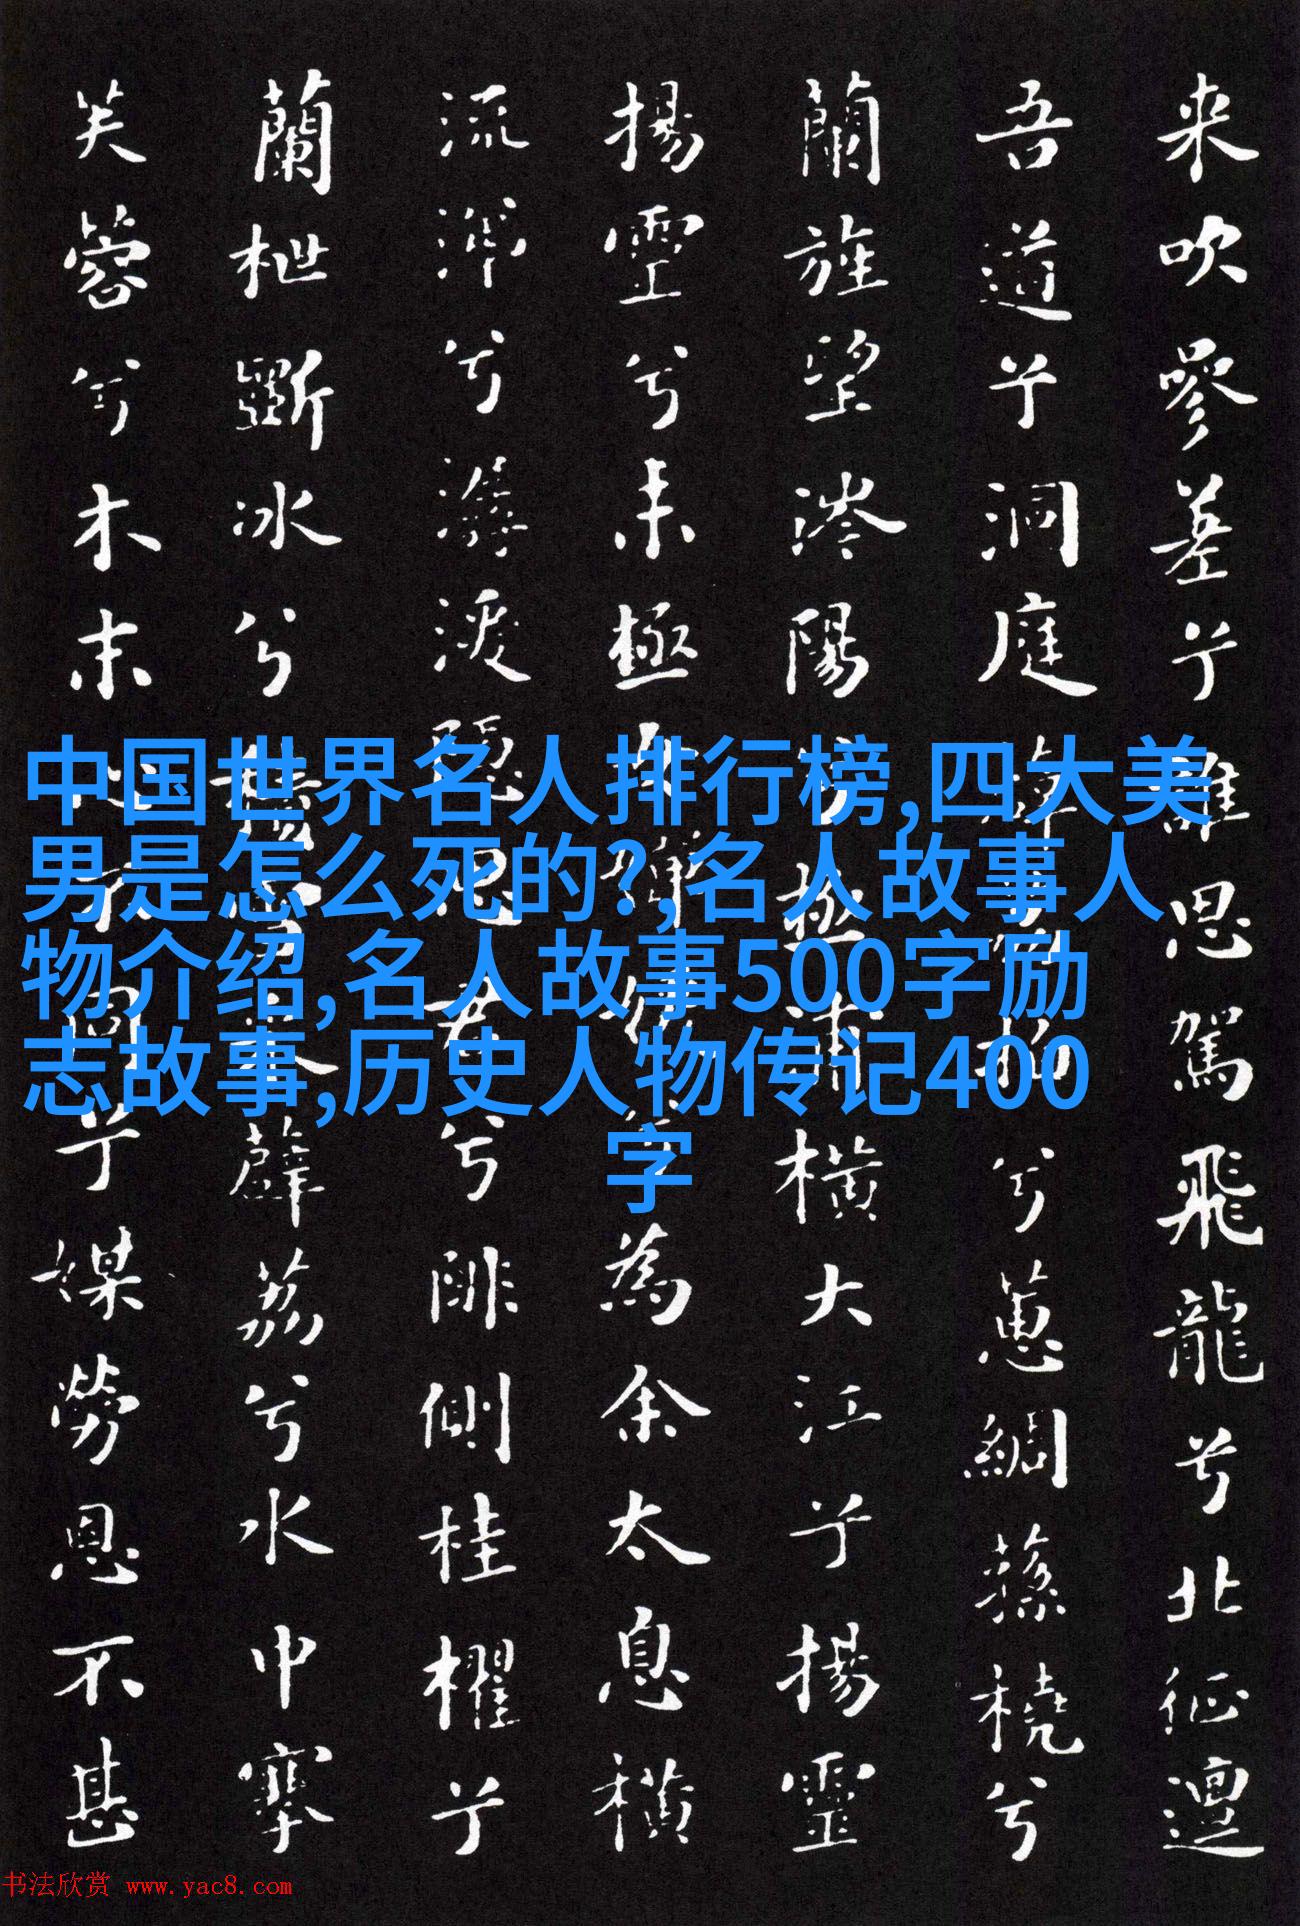 来吹參差兮誰思駕飛龍兮北征邅
吾道兮洞庭薜荔拍兮蕙綢蓀橈兮
蘭旌望涔陽兮極浦橫大江兮揚靈
揚靈兮未極女嬋媛兮為余太息橫
流涕兮潺湲隱思君兮陫側桂櫂兮
蘭枻斲冰兮積雪采薜荔兮水中搴
芙蓉兮木末心不同兮媒勞恩不甚
中国世界名人排行榜,四大美
男是怎么死的?,名人故事人
物介绍,名人故事500字励
志故事,历史人物传记400
字
书法欣赏 www.yac8.com